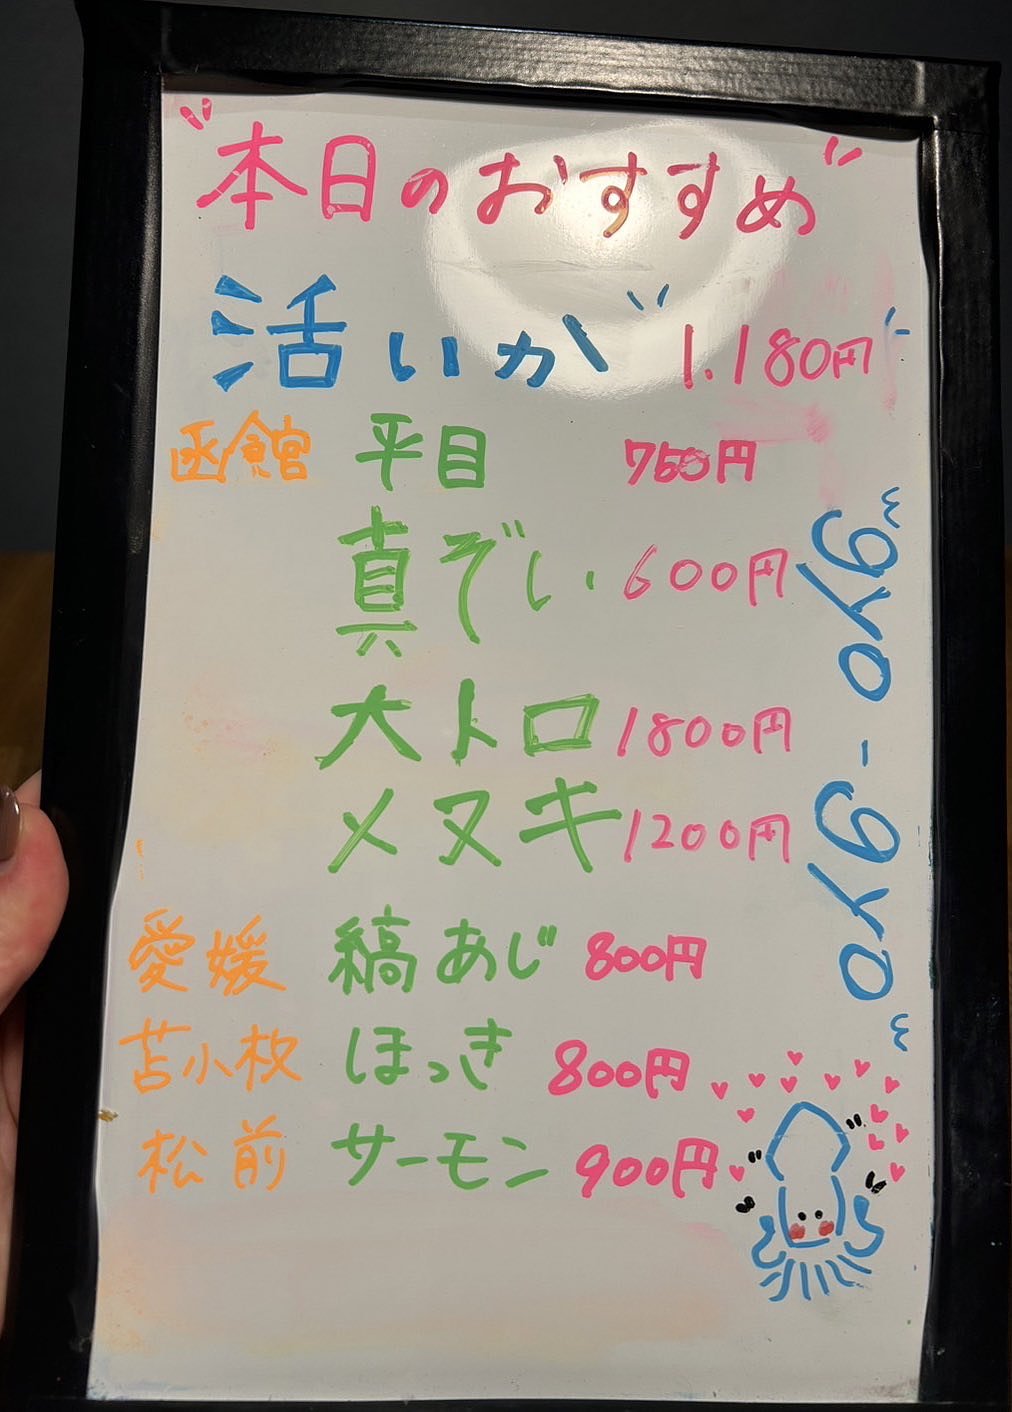 "本日のおすすめ"
活いか 1.180円
函館 平目 750円
真ぞい 600円
大トロ 1800円
メヌキ 1200円
愛媛 縞あじ 800円
苫小牧 ほっき 800円
松前 サーモン 900円
gyo-gyo